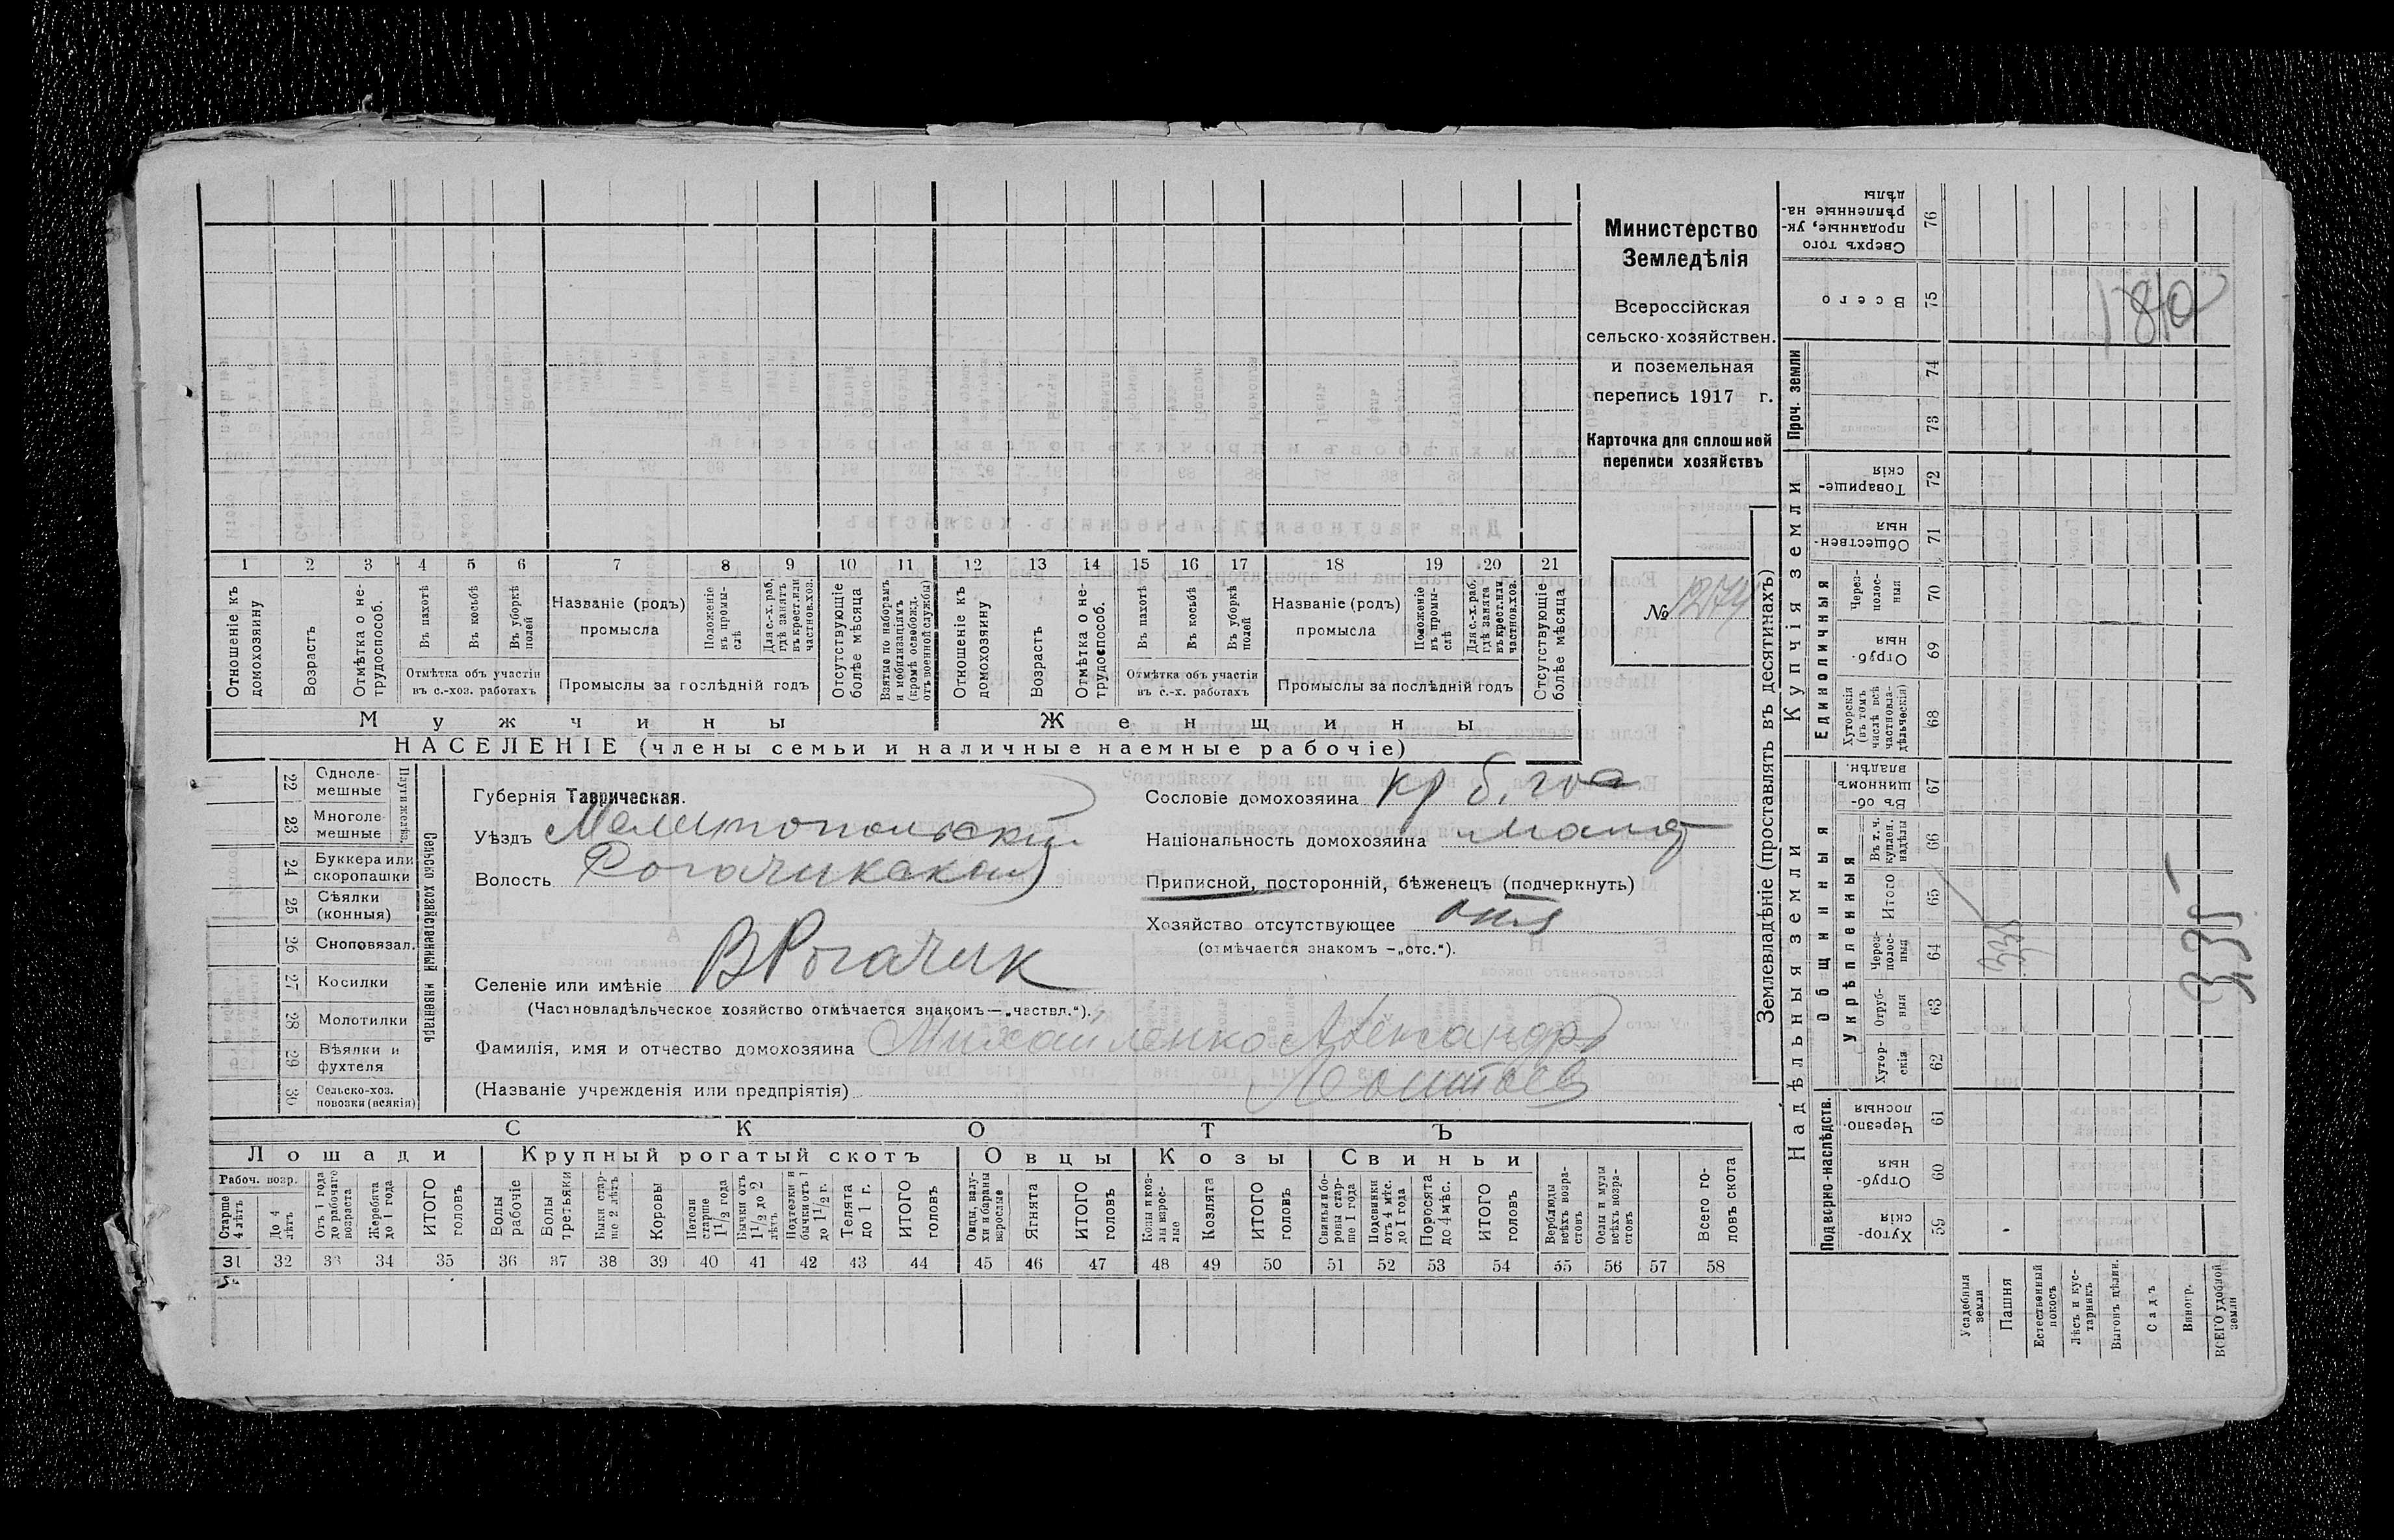 Министерство
Земледѣлія
Всероссійская
сельско-хозяйствен.
и поземельная
перепись 1917 г.
Карточка для сплошной
переписи хозяйствъ
№ 1274
1 2 3 4 5 6 7 8 9 10 11 12 13 14 15 16 17 18 19 20 21
Отношеніе къ домохозяину
Возрастъ
Отмѣтка о не-трудоспособ.
Въ пахотѣ
Въ косьбѣ
Въ уборкѣ полей
Отмѣтка объ участіи
въ с.-хоз. работахъ
Названіе (родъ)
промысла
Положеніе въ промы-слѣ
Для с.-х. раб. гдѣ занятъ въ крест. или частнов. хоз.
Промыслы за послѣдній годъ
Отсутствующіе болѣе мѣсяца
Взятые по наборамъ и мобилизаціямъ (кромѣ освобожд. отъ военной службы)
Отношеніе къ домохозяину
Возрастъ
Отмѣтка о не-трудоспособ.
Въ пахотѣ
Въ косьбѣ
Въ уборкѣ полей
Отмѣтка объ участіи
въ с.-х. работахъ
Названіе (родъ)
промысла
Положеніе въ промы-слѣ
Для с.-х. раб. гдѣ занята въ крест. или частнов. хоз.
Промыслы за послѣдній годъ
Отсутствующіе болѣе мѣсяца
Мужчины
Женщины
НАСЕЛЕНІЕ (члены семьи и наличные наемные рабочіе)
22 Одноле-мешные
23 Многоле-мешные
24 Буккера или скоропашки
25 Сѣялки (конныя)
26 Сноповязал.
27 Косилки
28 Молотилки
29 Вѣялки и фухтеля
30 Сельско-хоз. повозки (всякія)
Сельско хозяйственный инвентарь
Губернія Таврическая.
Уѣздъ Мелитопольский
Волость Рогачикская
Селеніе или имѣніе В Рогачик
(Частновладѣльческое хозяйство отмѣчается знакомъ—„частвл.“).
Фамилія, имя и отчество домохозяина Михайленко Александр
(Названіе учрежденія или предпріятія) Леонтьев
Сословіе домохозяина кр
Національность домохозяина
Приписной, посторонній, бѣженецъ (подчеркнуть)
Хозяйство отсутствующее
(отмѣчается знакомъ —„отс.“).
СКОТЪ
Лошади
Крупный рогатый скотъ
Овцы
Козы
Свиньи
Рабоч. возр.
Старше 4 лѣтъ
До 4 лѣтъ
Отъ 1 года до рабочаго возраста
Жеребята до 1 года
ИТОГО головъ
Волы рабочіе
Волы третьяки
Быки стар-ше 2 лѣтъ
Коровы
Нетели старше 1 1/2 года
Бычки отъ 1 1/2 до 2 лѣтъ
Подтелки и бычки отъ 1 до 1 1/2 г.
Телята до 1 г.
ИТОГО головъ
Овцы, валу-хи и бараны взрослые
Ягнята
ИТОГО головъ
Козы и коз-лы взрос-лые
Козлята
ИТОГО головъ
Свиньи и бо-ровы стар-ше 1 года
Подсвинки отъ 4 мѣс. до 1 года
Поросята до 4 мѣс.
ИТОГО головъ
Верблюды всѣхъ возра-стовъ
Ослы и мулы всѣхъ возра-стовъ
Всего го-ловъ скота
31 32 33 34 35 36 37 38 39 40 41 42 43 44 45 46 47 48 49 50 51 52 53 54 55 56 57 58
Землевладѣніе (проставлять въ десятинахъ)
Купчія земли
Надѣльныя земли
Проч. земли
Единоличныя
Общинныя
Укрѣпленныя
Подворно-наслѣдств.
76 Сверхъ того проданные, ук-рѣпленные на-дѣлы
75 Всего
74
73
72 Товарище-скія
71 Обществен-ныя
70 Через-полос-ныя
69 Отруб-ныя
68 Хуторскія (въ томъ числѣ всѣ частновла-дѣльческія)
67 Въ об-щинномъ владѣн.
66 Въ т. ч. куплен. надѣлы
65 Итого
64 Через-полос-ныя
63 Отруб-ныя
62 Хутор-скія
61 Черезпо-лосныя
60 Отруб-ныя
59 Хутор-скія
Усадебныя земли
Пашня
Естественный покосъ
Лѣсъ и кус-тарникъ
Выгонъ цѣлин.
Садъ
Виногр.
ВСЕГО удобной земли